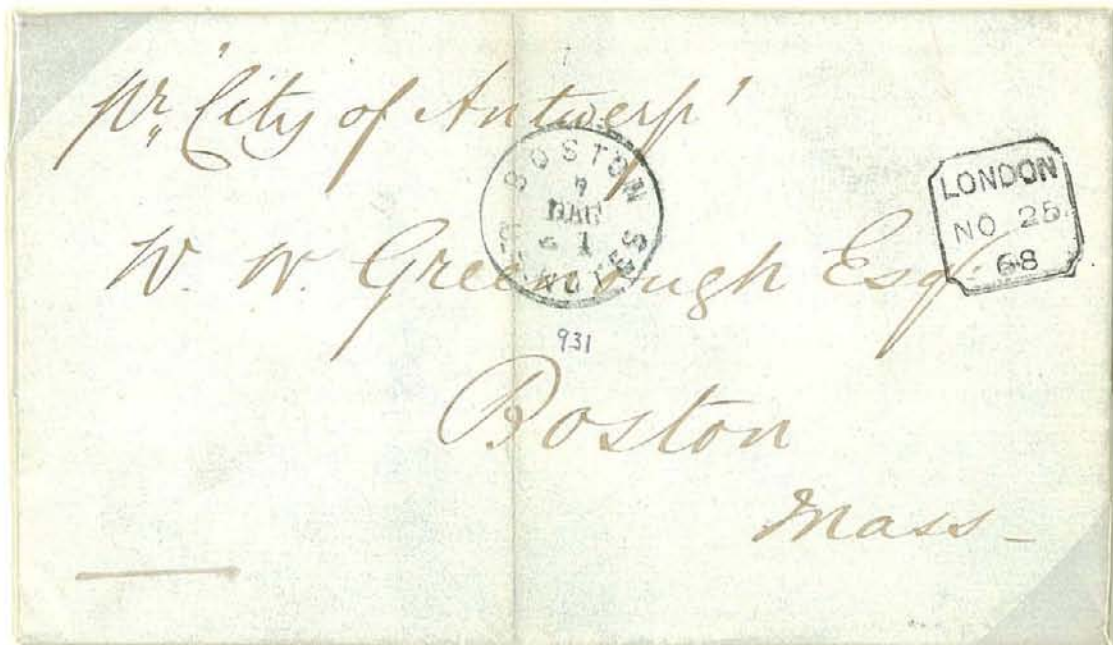 pr. "City of Antwerp"
BOSTON
NOTES
LONDON
NO 25
68
W. W. Greenough Esq.
931
Boston
Mass